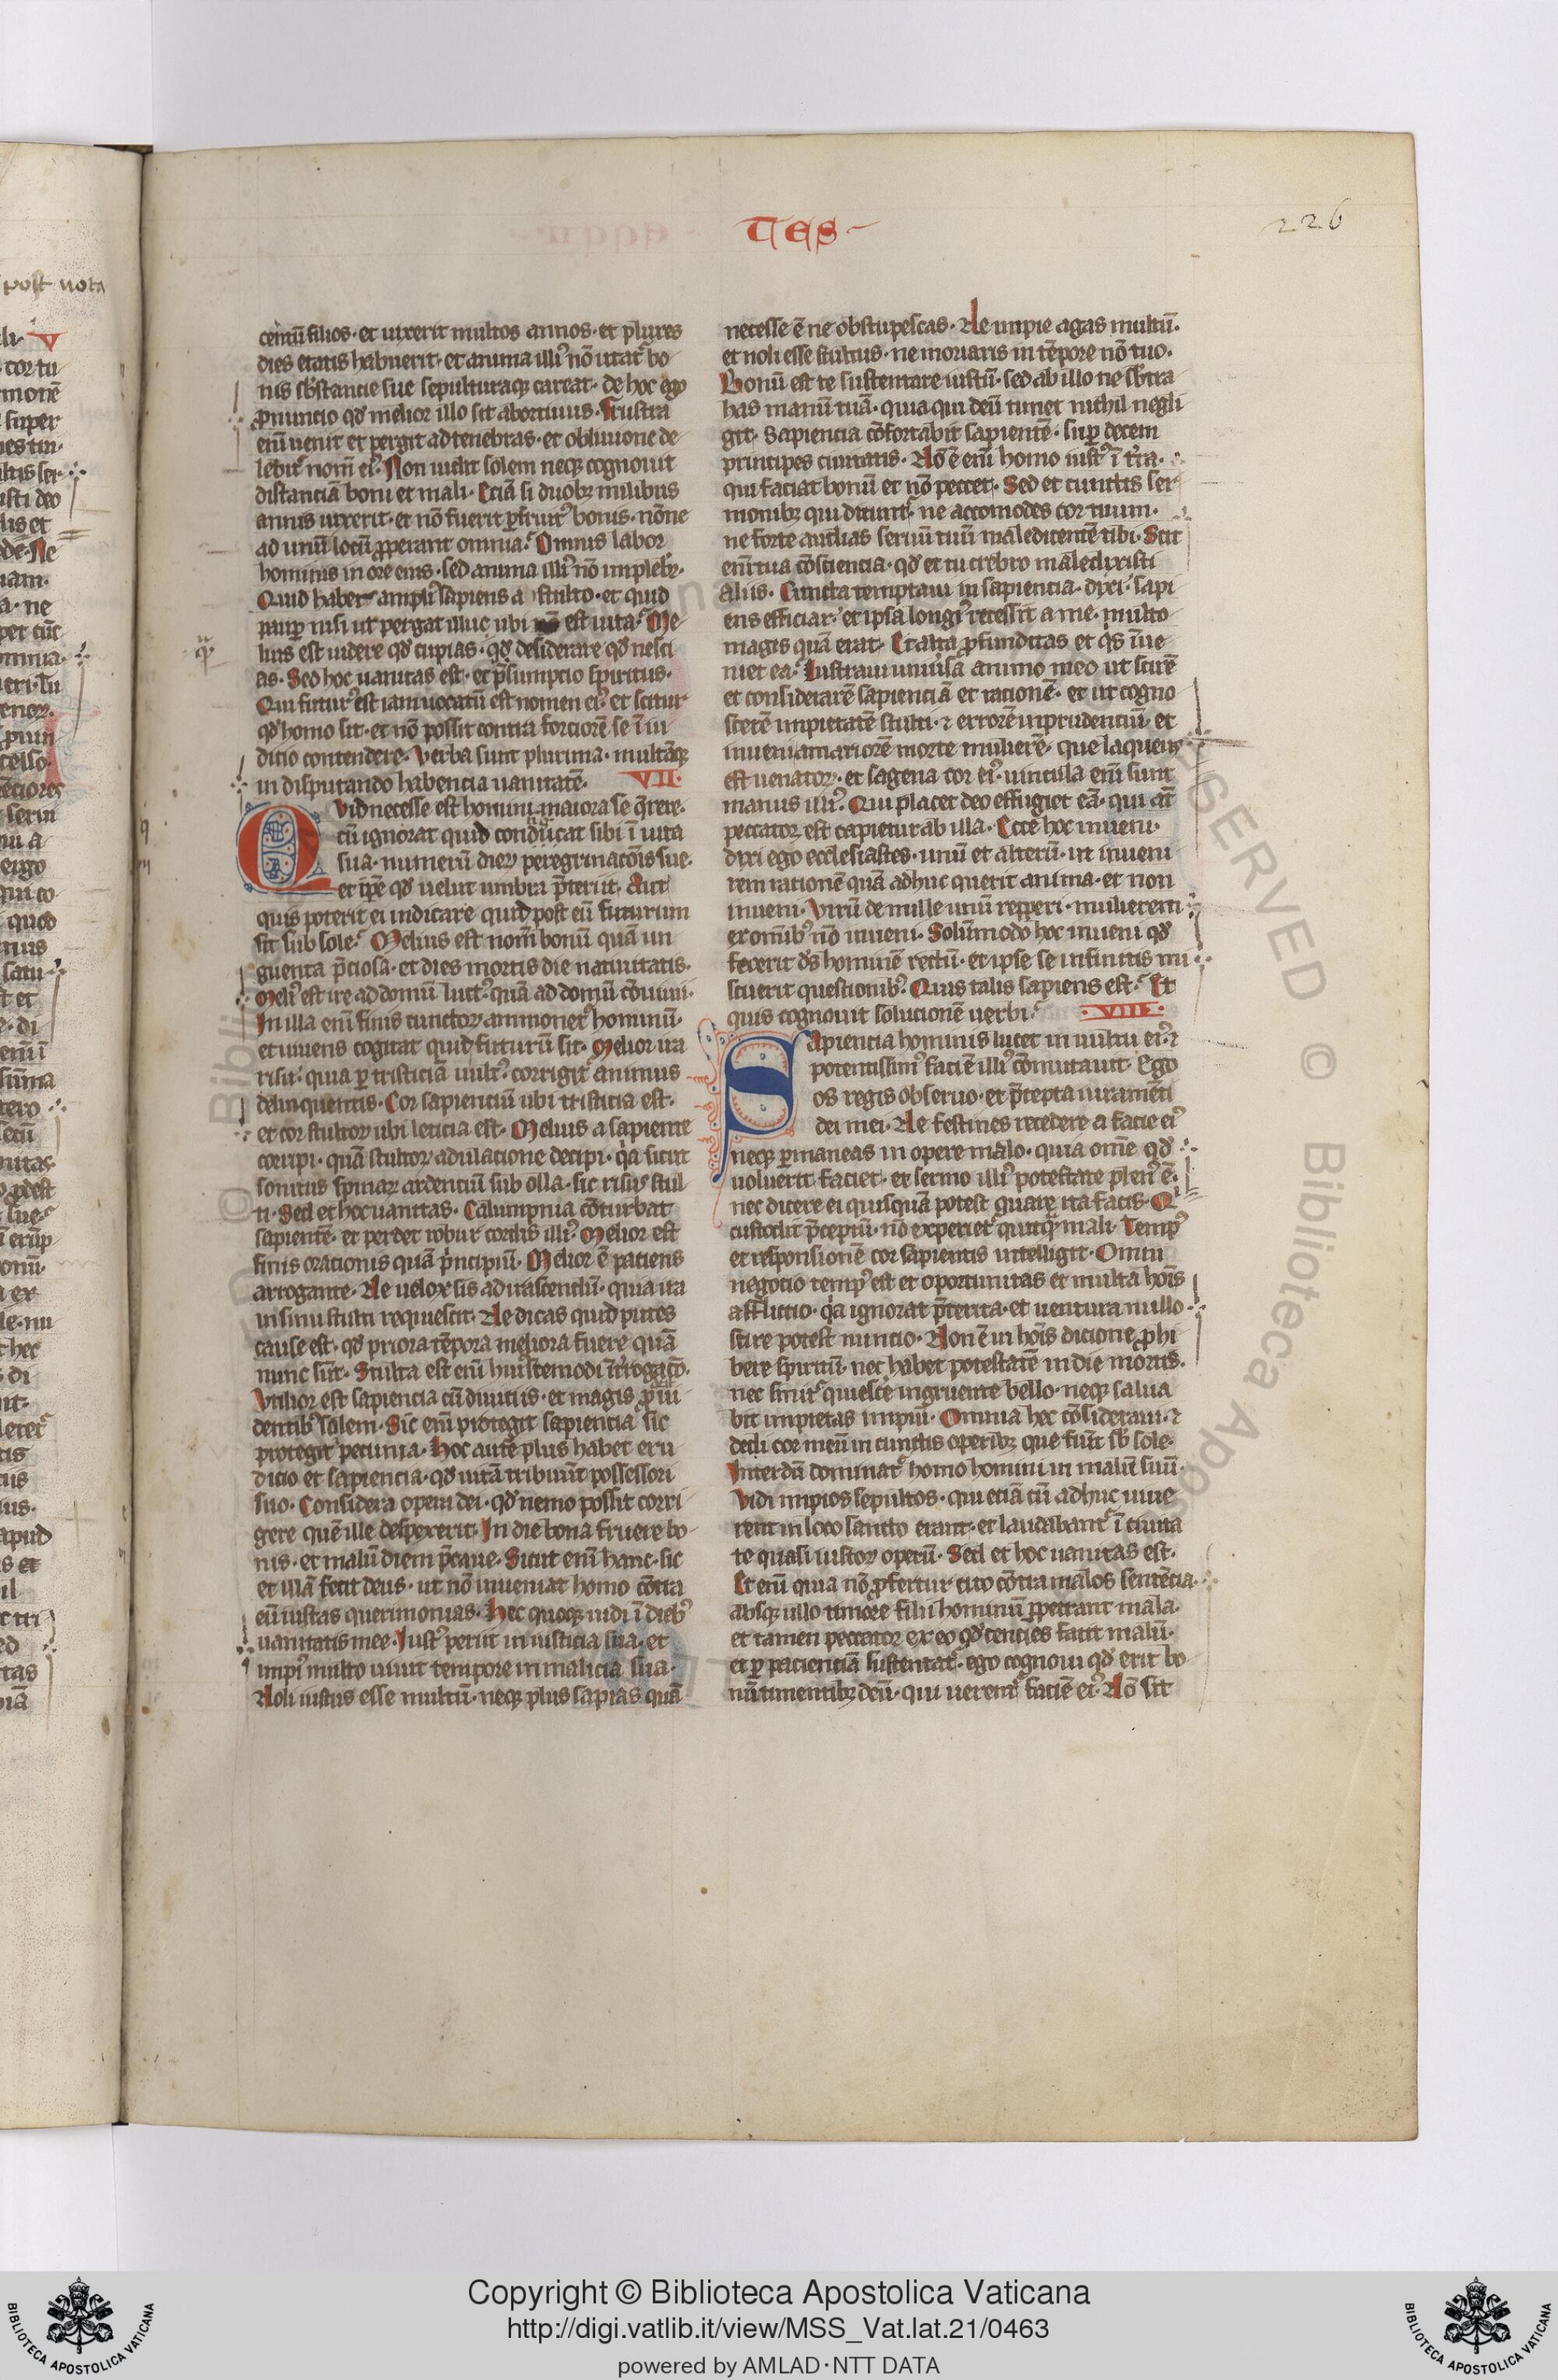 TES
226
centū filios· et uixerit multos annos· et plures
dies etatis habuerit· et anima illiꝰ nō utatr̄ bo
nis sb̄stancie sue sepulturaqꝫ careat· de hoc ego
ꝓnuncio qd̓ melior illo sit abortiuus· Frustra
enī uenit et pergit ad tenebras· et obliuione de
lebitr̄ nom̄ eiꝰ· Non uidit solem neqꝫ cognouit
distanciā boni et mali· Eciā si duobꝫ milibus
annis uixerit· et nō fuerit ꝑfruitꝰ bonis· nōne
ad unū locū ꝓperant omnia· Omnis labor
hominis in ore eius· sed anima illiꝰ nō implebr̄·
Quid habet ampliꝰ sapiens a stulto· et quid
paup̄ nisi ut pergat illuc ubi est uita· Me
lius est uidere qd̓ cupias· qd̓ desiderare qd̓ nesci
as· Sed hoc uanitas est· et p̄sumpcio spiritus·
Qui futurꝰ est iam uocatū est nomen eiꝰ· et scitur
qd̓ homo sit· et nō possit contra forciorē se ī iu
dicio contendere· Verba sunt plurima· multāqꝫ
in disputando habencia uanitatē· VII·
Quid necesse est homini maiora se q̄rere·
cū ignorat quid conducat sibi ī uita
sua· numerū dieꝝ peregrinacōis sue·
et tp̄e qd̓ uelut umbra p̄terit· Aut
quis poterit ei indicare quid post eū futurum
sit sub sole· Melius est nom̄ bonū quā un
guenta p̄ciosa· et dies mortis die natiuitatis·
Meliꝰ est ire ad domū luctꝰ quā ad domū cōuiuii·
In illa enī finis cunctoꝝ ammonetr̄ hominū·
et uiuens cogitat quid futurū sit· Melior ira
risu· quia ꝑ tristiciā uultꝰ corrigitr̄ animus
delinquentis· Cor sapienciū ubi tristicia est·
et cor stultoꝝ ubi leticia est· Melius a sapiente
corripi· quā stultoꝝ adulacione decipi· qa sicut
sonitus spinaꝝ ardenciū sub olla· sic risus stul
ti· Sed et hoc uanitas· Calumpnia cōturbat
sapientē· et perdet robur cordis illiꝰ· Melior est
finis oracionis quā p̄ncipiū· Melior ē paciens
arrogante· Ne uelox sis ad irascendū· quia ira
in sinu stulti requiescit· Ne dicas quid putes
cause est· qd̓ priora tēpora meliora fuere quā
nunc sūt· Stulta est enī huiꝰcemodi īt̄rogacō·
Vtilior est sapiencia cū diuiciis· et magis ꝓd̓ ui
dentibꝰ solem· Sic enī protegit sapiencia sic
protegit pecunia· Hoc autē plus habet eru
dicio et sapiencia· qd̓ uitā tribuūt possessori
suo· Considera opera dei· qd̓ nemo possit corri
gere quē ille despexerit· In die bona fruere bo
nis· et malū diem p̄caue· Sicut enī hanc· sic
et illā fecit deus· ut nō inueniat homo cōtra
eū iustas querimonias· Hec quoqꝫ uidi ī diebꝰ
uanitatis mee· Iustꝰ perit in iusticia sua· et
impiꝰ multo uiuit tempore in malicia sua·
Noli iustus esse multū· neqꝫ plus sapias quā
necesse ē ne obstupescas· Ne impie agas multū·
et noli esse stultus· ne moriaris in tēpore nō tuo·
Bonū est te sustentare iustū· sed ab illo ne sb̄tra
has manū tuā· quia qui deū timet nichil negli
git· Sapiencia cōfortabit sapientē· sup̄ decem
principes ciuitatis· Nō ē enī homo iustꝰ ī t̄ra·
qui faciat bonū et nō peccet· Sed et cunctis ser
monibꝫ qui dicuntr̄ ne accomodes cor tuum·
ne forte audias seruū tuū maledicentē tibi· Scit
enī tua cōsciencia· qd̓ et tu crebro maledixisti
aliis· Cuncta temptaui in sapiencia· dixi· sapi
ens efficiar· et ipsa longiꝰ recessit a me· multo
magis quā erat· Et alta ꝓfunditas et q̓s īue
niet eā· Lustraui uniūsa animo meo ut scirē
et considerarē sapienciā et racionē· et ut cogno
scerē impietatē stulti· ⁊ errorē inprudenciū· et
inueni amariorē morte mulierē· que laqueus
est uenatoꝝ· et sagena cor eiꝰ· uincula enī sunt
manus illiꝰ· Qui placet deo effugiet eā· qui aūt
peccator est capietur ab illa· Ecce hoc inueni·
dixi ego ecclesiastes· unū et alterū· ut inueni
rem racionē quā adhuc querit anima· et non
inueni· Virū de mille unū repperi· mulierem
ex omībꝰ nō inueni· Solūmodo hoc inueni qd̓
fecerit dꝰs hominē rectū· et ipse se infinitis mi
scuerit questionibꝰ· Quis talis sapiens est· Et
quis cognouit solucionē uerbi· VIII·
Sapiencia hominis lucet in uultu eiꝰ· ⁊
potentissimꝰ faciē illiꝰ cōmutauit· Ego
os regis obseruo· et p̄cepta iuramēti
dei mei· Ne festines recedere a facie eiꝰ
neqꝫ ꝑmaneas in opere malo· quia omē qd̓
uoluerit faciet· et sermo illiꝰ potestate plenꝰ ē·
nec dicere ei quisquā potest quare ita facis· Qi
custodit p̄ceptū· nō experietr̄ quicq̄ mali· Tempꝰ
et responsionē cor sapientis intelligit· Omni
negocio tempꝰ est et oportunitas et multa hoīs
afflictio· qa ignorat p̄terita· et uentura nullo
scire potest nuncio· Non ē in hoīs dicione ꝓhi
bere spiritū· nec habet potestatē in die mortis·
nec sinitr̄ quiescē ingruente bello· neqꝫ salua
bit impietas impiū· Omnia hec cōsideraui· ⁊
dedi cor meū in cunctis operibꝫ que fiūt sb̄ sole·
Interdū dominatr̄ homo homini in malū suū·
Vidi impios sepultos· qui eciā cū adhuc uiue
rent in loco sancto erant· et laudabantr̄ ī ciuita
te quasi iustoꝝ operū· Sed et hoc uanitas est·
Et enī quia nō ꝓfertur cito cōtra malos sentēcia·
absqꝫ ullo timore filii hominū ꝑpetrant mala·
et tamen peccator ex eo qd̓ cencies facit malū·
et ꝑ pacienciā sustentatr̄· ego cognoui qd̓ erit bo
nū timentibꝫ deū· qui uerentr̄ faciē eiꝰ· Nō sit
Copyright © Biblioteca Apostolica Vaticana
http://digi.vatlib.it/view/MSS_Vat.lat.21/0463
powered by AMLAD·NTT DATA
BIBLIOTECA APOSTOLICA VATICANA
BIBLIOTECA APOSTOLICA VATICANA